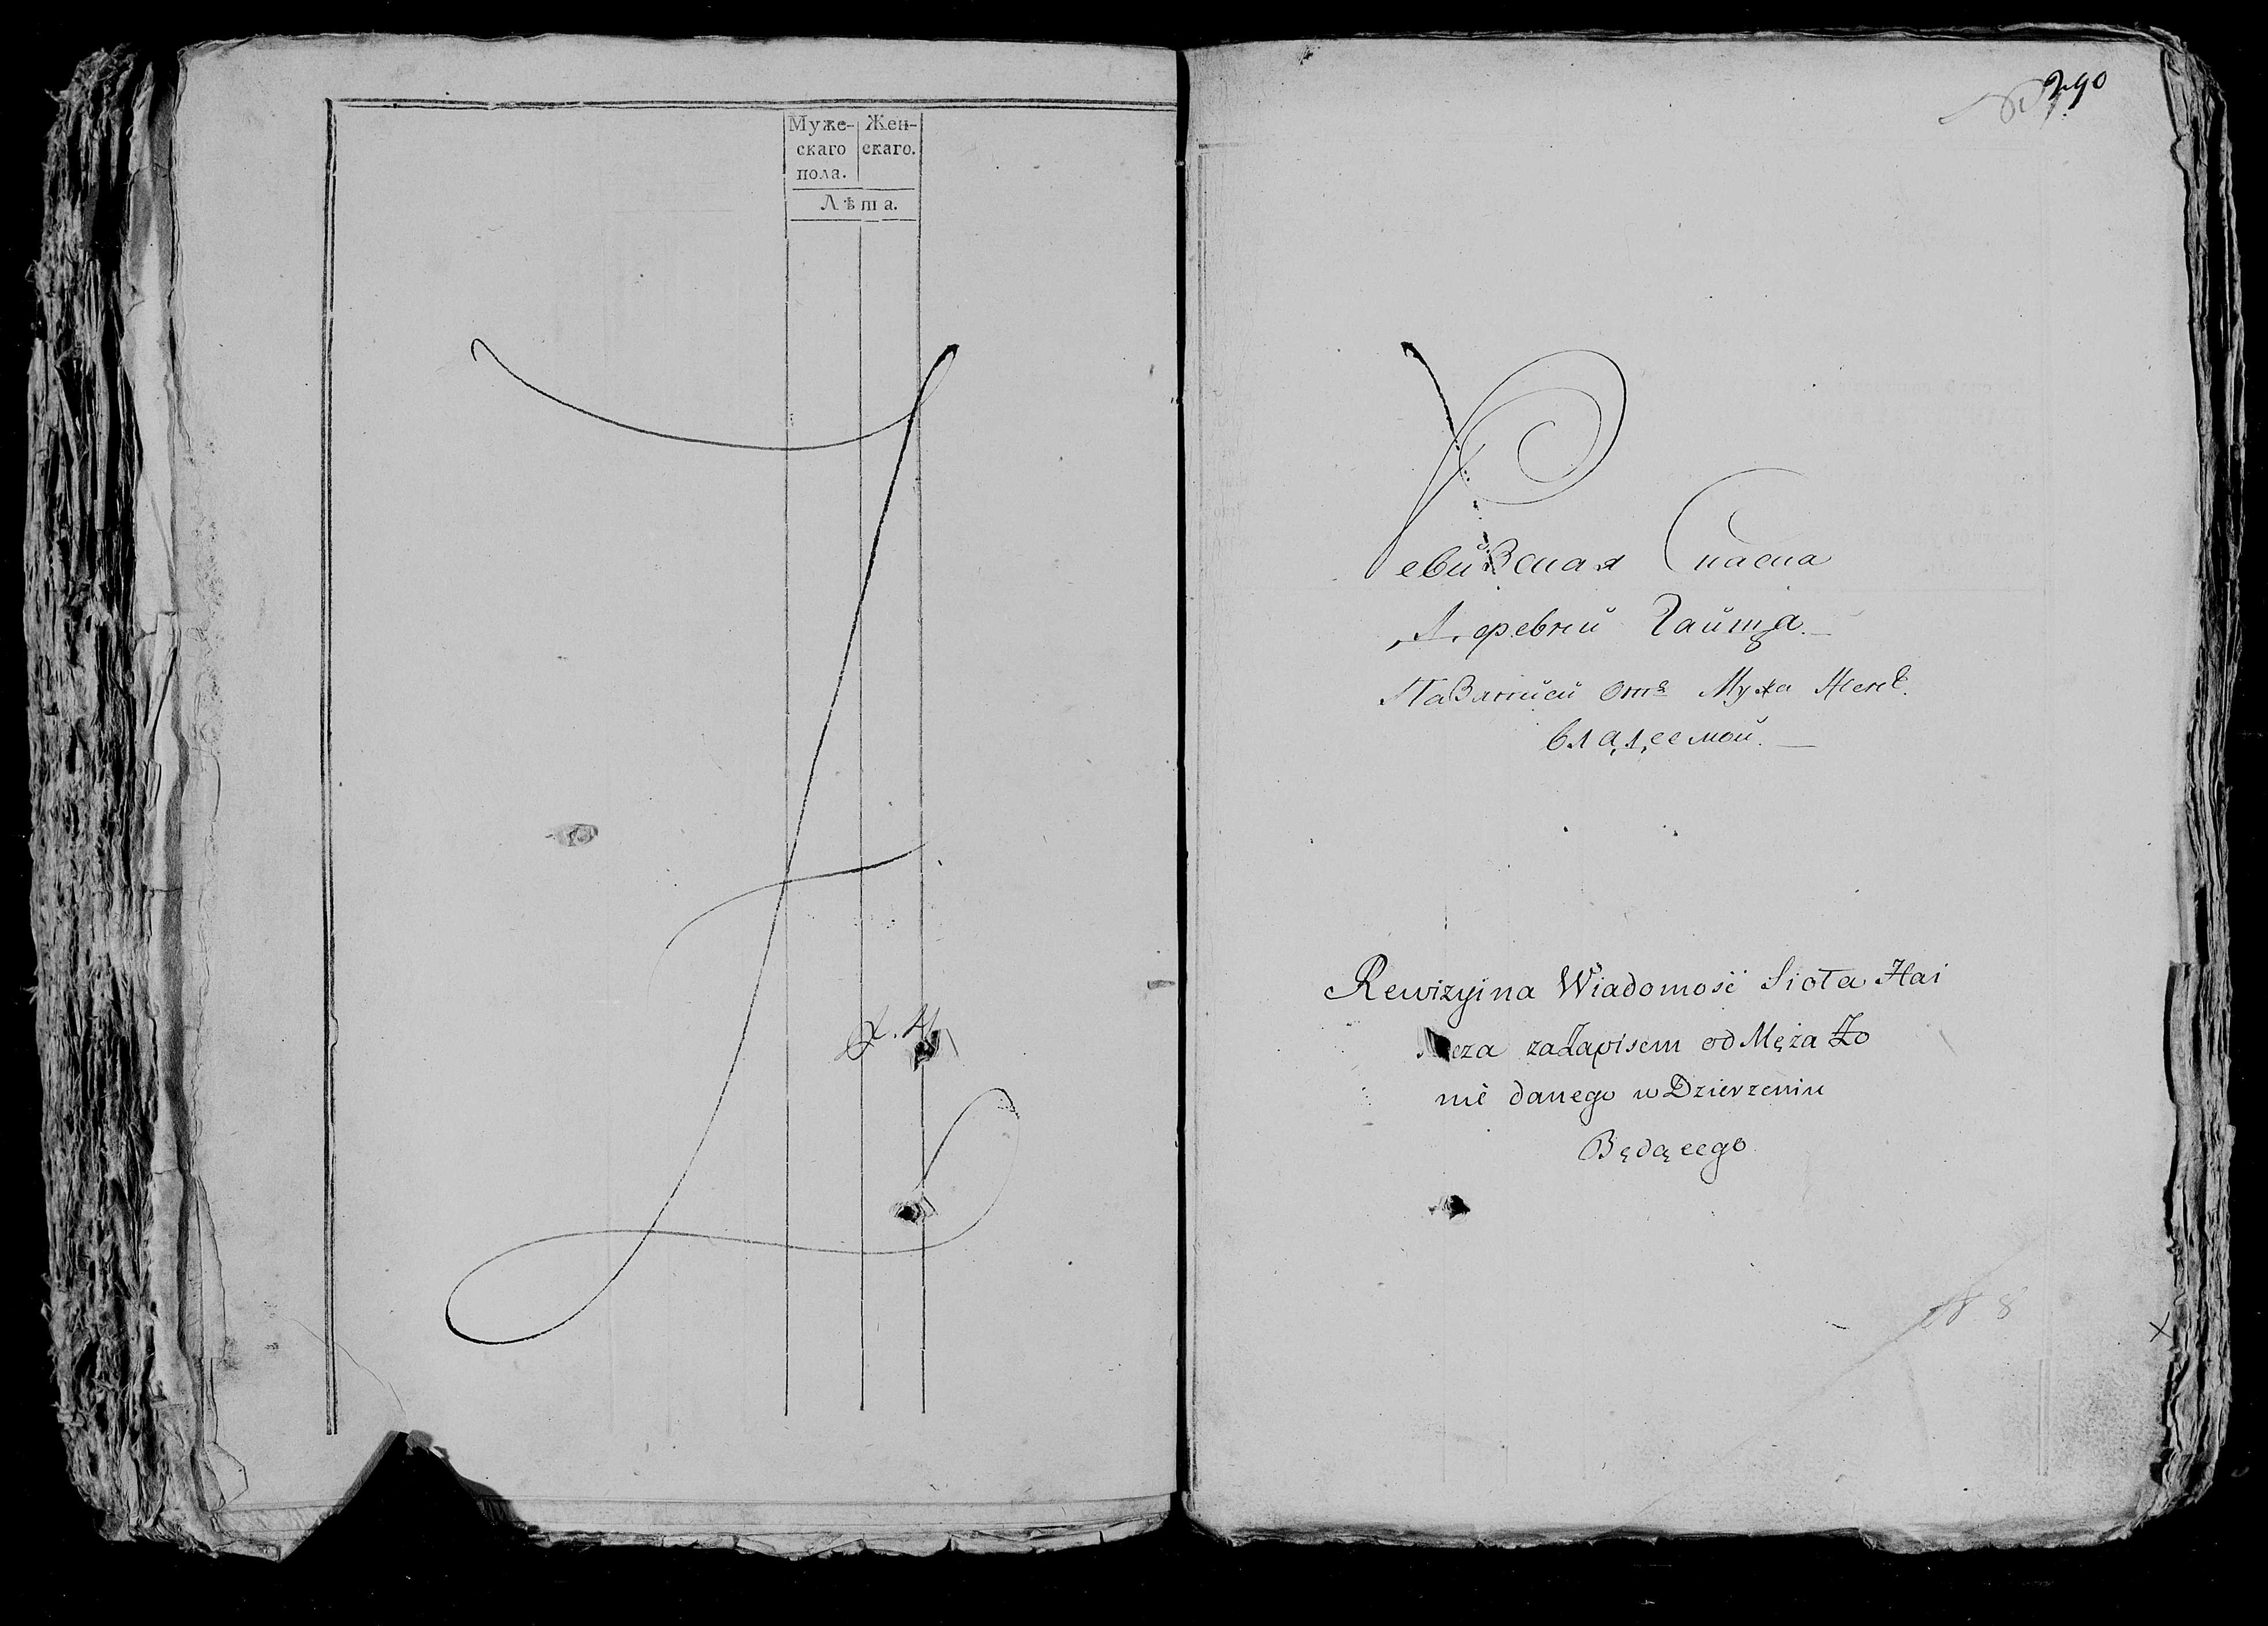 Муже- Жен-
скаго скаго.
пола.
Лѣта.
290
Ревизская Скаска
Деревни Гайтца.
По Записи отъ Мужа Жене.
владеемой.
Rewizyina Wiadomość Sioła Hai
cza za Zapisem od Męża Żo
nie danego w Dzierzeniu
Będącego
№ 8